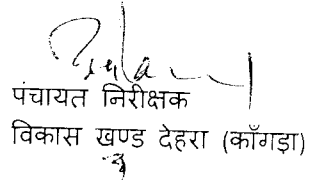 पंचायत निरीक्षक
विकास खण्ड देहरा (काँगड़ा)